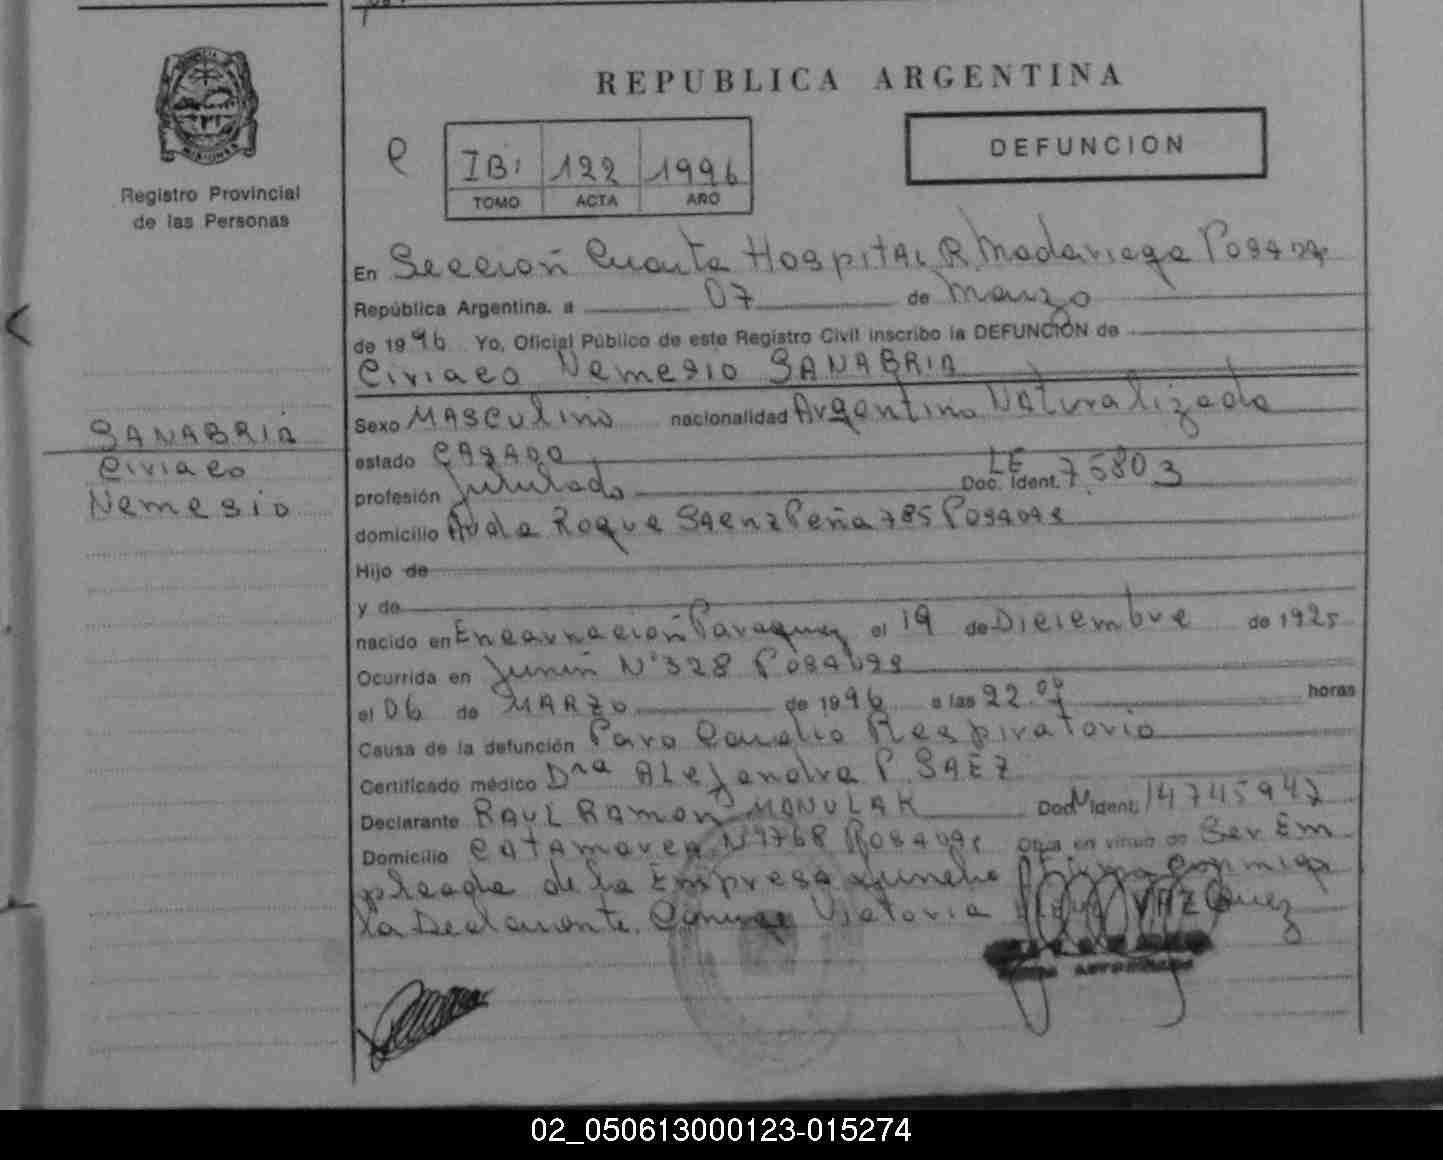 REPUBLICA ARGENTINA
DEFUNCION
IB: 122 1996
TOMO ACTA AÑO
Registro Provincial
de las Personas
En Sección Cuarta Hospital R. Madariaga Posadas
República Argentina. a 07 de Marzo
de 1996 Yo, Oficial Público de este Registro Civil inscribo la DEFUNCIÓN de
Ciriaco Nemesio SANABRIA
Sexo Masculino nacionalidad Argentino Naturalizado
estado CASADO
profesión Jubilado Doc. Ident. LE 75803
domicilio Avda Roque Saenz Peña 785 Posadas
Hijo de
y de
nacido en Encarnación Paraguay el 19 de Diciembre de 1925
Ocurrida en Junin N° 328 Posadas
el 06 de MARZO de 1996 a las 22. horas
Causa de la defunción Paro Cardio Respiratorio
Certificado médico Dra Alejandra P. SAEZ
Declarante RAUL RAMON MANULAK Doc. Ident. 14745947
Domicilio Catamarca N° 1768 Posadas Obra en virtud de Ser Em
pleado de la Empresa funebre firma conmigo
la Declarante. Conyuge Victoria VAZquez
SANABRIA
Ciriaco
Nemesio
02_050613000123-015274